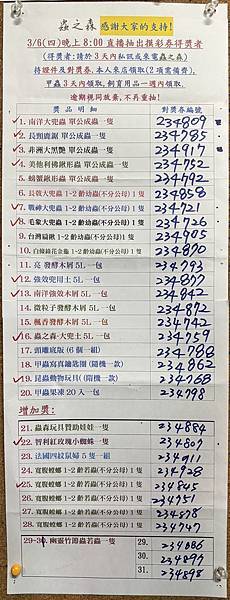 蟲之森 感謝大家的支持!
3/6(四)晚上8:00直播抽出摸彩券得獎者
(得獎者:請於3天內私訊或來電蟲之森)
持證件及對獎券、本人來店領取(2項需備齊)。
甲蟲3天內領取,飼育用品一週內領取。
逾期視同放棄,不再重抽!
獎品明細 對獎券編號
1. 南洋大兜蟲 單公成蟲一隻 234809
2. 長頸鹿鋸 單公成蟲一隻 234785
3. 非洲大黑艷 單公成蟲一隻 234917
4. 美他利佛鍬形蟲 單公成蟲一隻 234752
5. 螃蟹鍬形蟲 單公成蟲一隻 234792
6. 長戟大兜蟲 1-2齡幼蟲(不分公母)1隻 234858
7. 戰神大兜蟲 1-2齡幼蟲(不分公母)1隻 234721
8. 毛象大兜蟲 1-2齡幼蟲(不分公母)1隻 234726
9. 台灣扁鍬 1-2齡幼蟲(不分公母)1隻 234905
10. 白條綠花金龜 1-2齡幼蟲(不分公母)1隻 234870
11. 亮 發酵木屑 5L 一包 234793
12. 強效兜用土 5L 一包 234877
13. 南洋強效木屑 5L 一包 234842
14. 微粒子發酵木屑 5L 一包 234892
15. 楓香發酵木屑 5L 一包 234742
16. 蟲之森-大兜土 5L 一包 234759
17. 頭雕底版(6個一組) 234788
18. 甲蟲寫真鑰匙圈(隨機一款) 234862
19. 昆蟲動物玩具((隨機一款) 234768
20. 甲蟲果凍20入一包 234798
增加獎:
21. 蟲森玩具贊助娃娃一隻 234884
22. 智利紅玫瑰小蜘蛛一隻 234807
23. 法國四紋鼠婦5隻一組 234911
24. 寬腹螳螂 1-2齡若蟲(不分公母)1隻 234928
25. 寬腹螳螂 1-2齡若蟲(不分公母)1隻 234845
26. 寬腹螳螂 1-2齡若蟲(不分公母)1隻 234751
27. 寬腹螳螂 1-2齡若蟲(不分公母)1隻 234878
28. 寬腹螳螂 1-2齡若蟲(不分公母)1隻 234747
29-30. 幽靈竹節蟲若蟲一隻 29. 234886
30. 234897
31. 234898